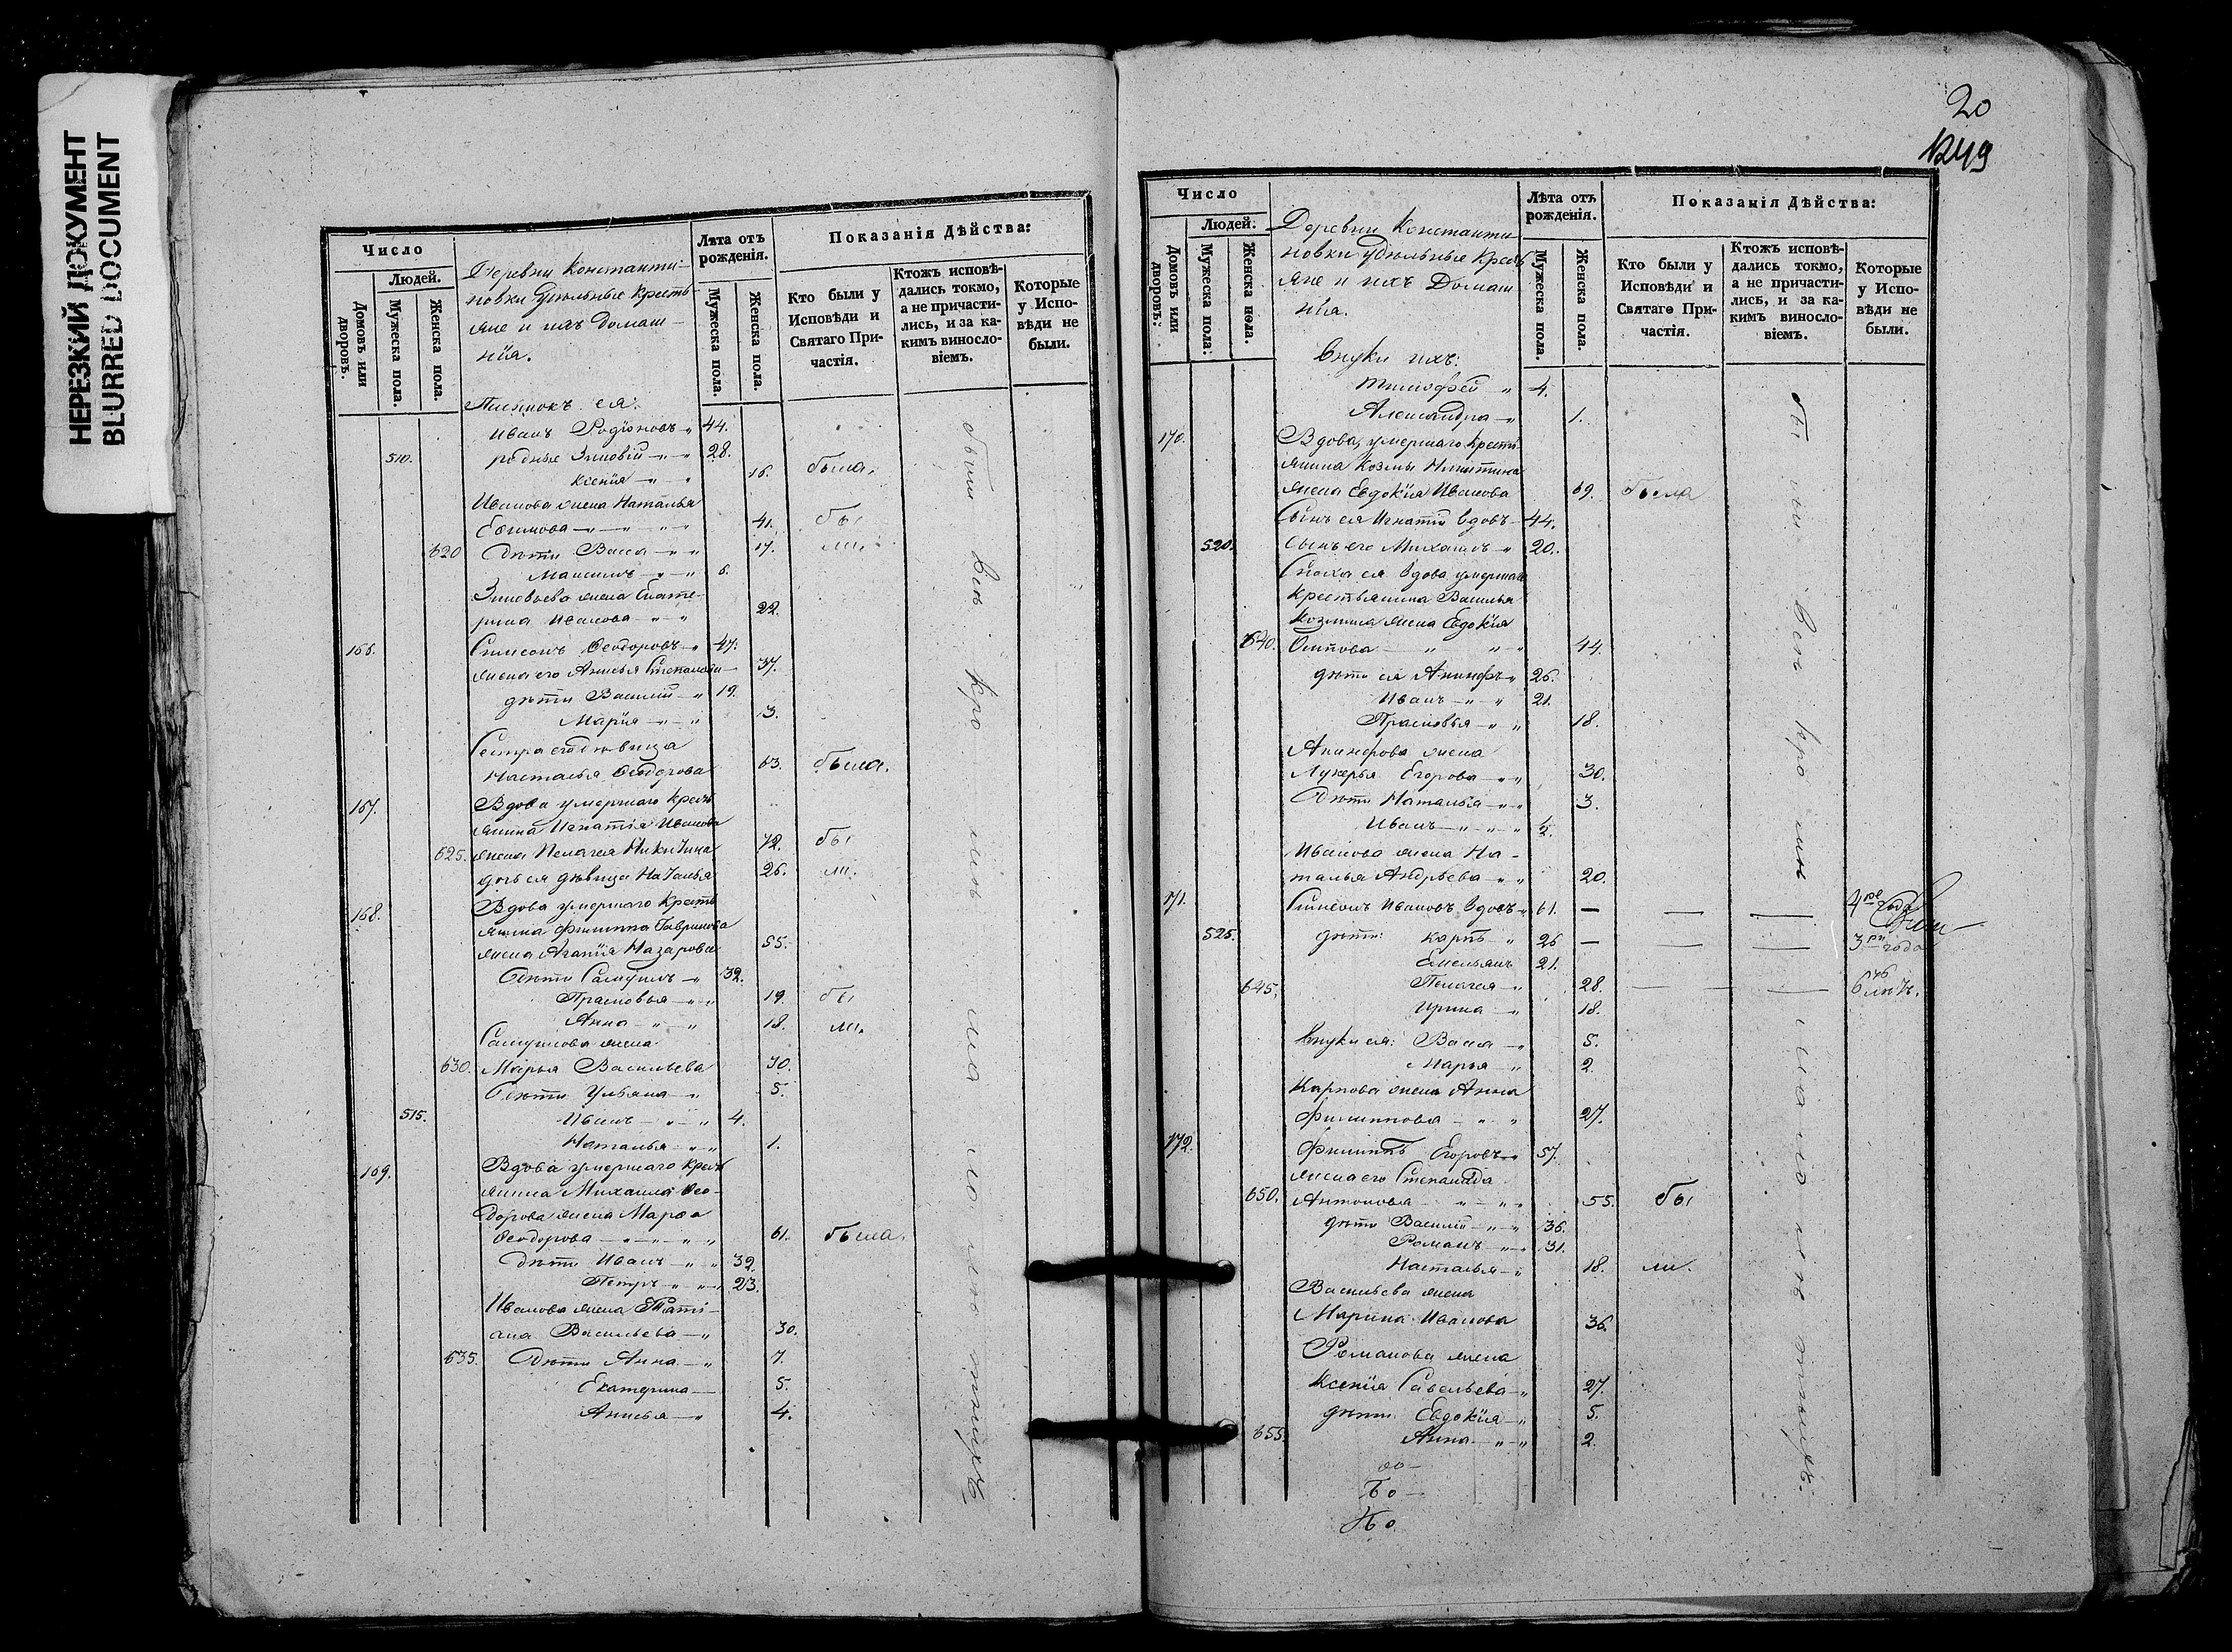 НЕРЕЗКИЙ ДОКУМЕНТ
BLURRED DOCUMENT
Число
Людей.
Домовъ или дворовъ.
Мужеска пола.
Женска пола.
Деревни Константи-
новки удѣльные кресть-
яне и ихъ домаш-
нія.
Лѣта отъ рожденія.
Мужеска пола.
Женска пола.
Показанія Дѣйства:
Кто были у Исповѣди и Святаго Причастія.
Ктожъ исповѣдались токмо, а не причастились, и за какимъ винословіемъ.
Которые у Исповѣди не были.
ея:
Иванъ Родіоновъ 44.
510. родные Зиновій 28.
Ксенія 16. была.
Иванова жена Наталья
Ефимова 41. бы
620 Дѣти Васса 17. ли.
Максимъ 6.
Зиновьева жена Екате-
рина Иванова 22.
166. Симеонъ Ѳеодоровъ 47.
жена его Анисья Степанова 37.
дѣти Василій 19.
Марія 3.
Сестра его дѣвица
Наталья Ѳеодорова 63. была.
167. Вдова умершаго кресть
янина Игнатія Иванова
625. жена Пелагея Никитина 72. бы
дочь ея дѣвица Наталья 26. ли.
168. Вдова умершаго кресть
янина Филиппа Гаврилова
жена Агапія Назарова 55.
Дѣти Самуилъ 32.
Прасковья 19. бы
Анна 18. ли.
Самуилова жена
630. Марья Васильева 30.
Дѣти Ульяна 5.
515. Иванъ 4.
Наталья 1.
169. Вдова умершаго кресть
янина Михаила Ѳео-
дорова жена Марѳа
Ѳеодорова 61. была.
Дѣти Иванъ 32.
Петръ 23.
Иванова жена Таті-
ана Васильева 30.
635. Дѣти Анна 7.
Екатерина 5.
Анисья 4.
20
1249
Число
Людей.
Домовъ или дворовъ.
Мужеска пола.
Женска пола.
Деревни Константи
новки удѣльные кресть
яне и ихъ домаш
нія.
Лѣта отъ рожденія.
Мужеска пола.
Женска пола.
Показанія Дѣйства:
Кто были у Исповѣди и Святаго Причастія.
Ктожъ исповѣдались токмо, а не причастились, и за какимъ винословіемъ.
Которые у Исповѣди не были.
Внуки ихъ:
Тимофей 4.
Александра 1.
170. Вдова умершаго кресть
янина Козмы Никитина
жена Евдокія Иванова 69. была
Сынъ ея Игнатій вдовъ 44.
520. Сынъ его Михаилъ 20.
Сноха ея вдова умершаго
крестьянина Василья
Козмина жена Евдокія
640. Осипова 44.
дѣти ея Акинфъ 26.
Иванъ 21.
Прасковья 18.
Акинфова жена
Лукерья Егорова 30.
Дѣти Наталья 3.
Иванъ 2.
Иванова жена На-
талья Андреева 20.
171. Симеонъ Ивановъ вдовъ 61.
525. дѣти: Карпъ 26
Емельянъ 21.
645. Пелагея 28.
Ирина 18.
Внуки ея: Васса 5.
Марья 2.
Карпова жена Анна
Филиппова 27.
172. Филиппъ Егоровъ 57.
жена его Степанида
650. Антонова 55. бы
дѣти Василій 36.
Романъ 31.
Наталья 18. ли.
Васильева жена
Марина Иванова 36.
Романова жена
Ксенія Савельева 27.
дѣти Евдокія 5.
655. Анна 2.